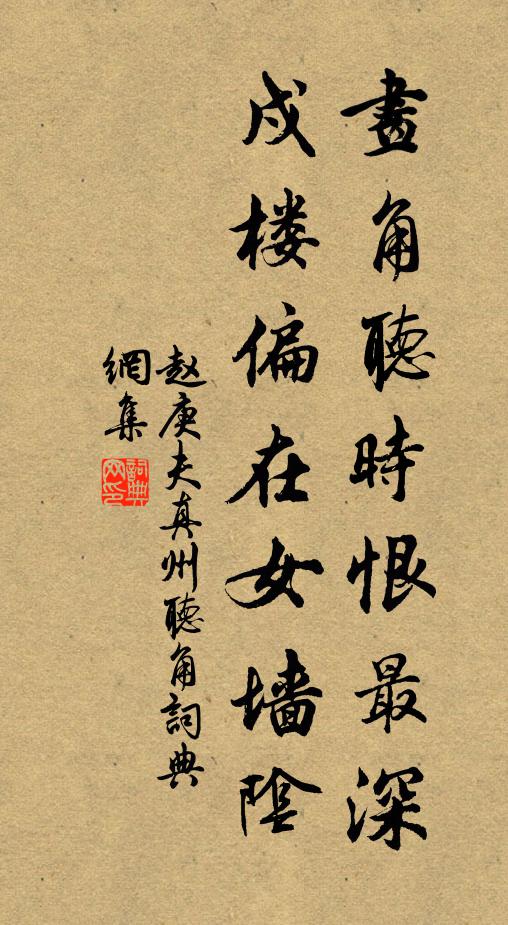 畫角聽時恨最深
戍楼偏在女墙陰
赵庚夫真州聽角詞典
網集
詞典網印